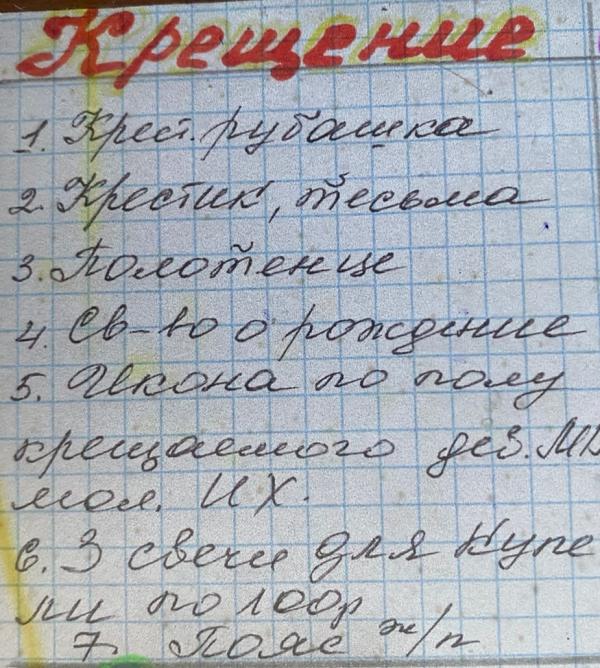 Крещение
1. Крест. рубашка
2. Крестик, тесьма
3. Полотенце
4. Св-во о рождение
5. Икона по полу
крещаемого дев.
мол. ИХ.
6. 3 свечи для купе
ли по 100р
7. Пояс ж/п